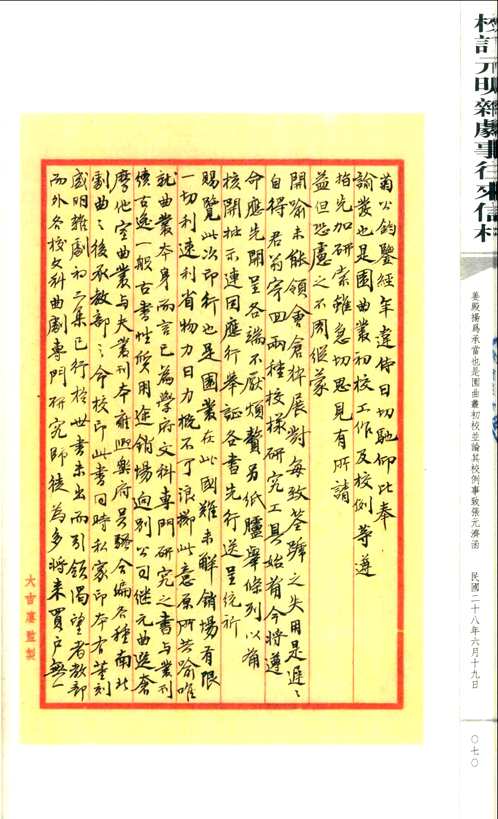 校訂元明雜劇事往來信札
姜殿揚爲承當也是園曲叢初校並論其校例事致張元濟函
民國二十八年六月十九日
〇七〇
菊公鈞鑒經年違侍日切馳仰比奉
諭叢也是園曲叢初校工作及校例等遵
指先加研索雖急切思見有所請
益但恐慮之不周假蒙
開喻未能領會倉猝展對每致荃蹄之失用是遲遲
自得君翁寄四兩種校樣研究工具始備今將遵
命應先開呈各端不厭煩贅另紙臚舉條列以備
核開批示連因應行舉証各書先行送呈統祈
賜覽此次印行也是園叢在此國難未解銷場有限
一切利速利省物力日力概不丁浪擲此意原所共喻唯
就曲叢本身而言已爲學府文科專門研究之書與叢刊
續古逸一般古書性質用途銷場向別公司繼元曲選奢
摩他室曲叢與夫叢刊本雍熙樂府吳騷合編各種南北
劇曲之後承教部之命校印此書同時私家印本有董刻
盛明雜劇初二集已行於世書未出而引領渴望者教部
而外各校文科曲劇專門研究師徒為多將來買戶無一
大吉廔監製